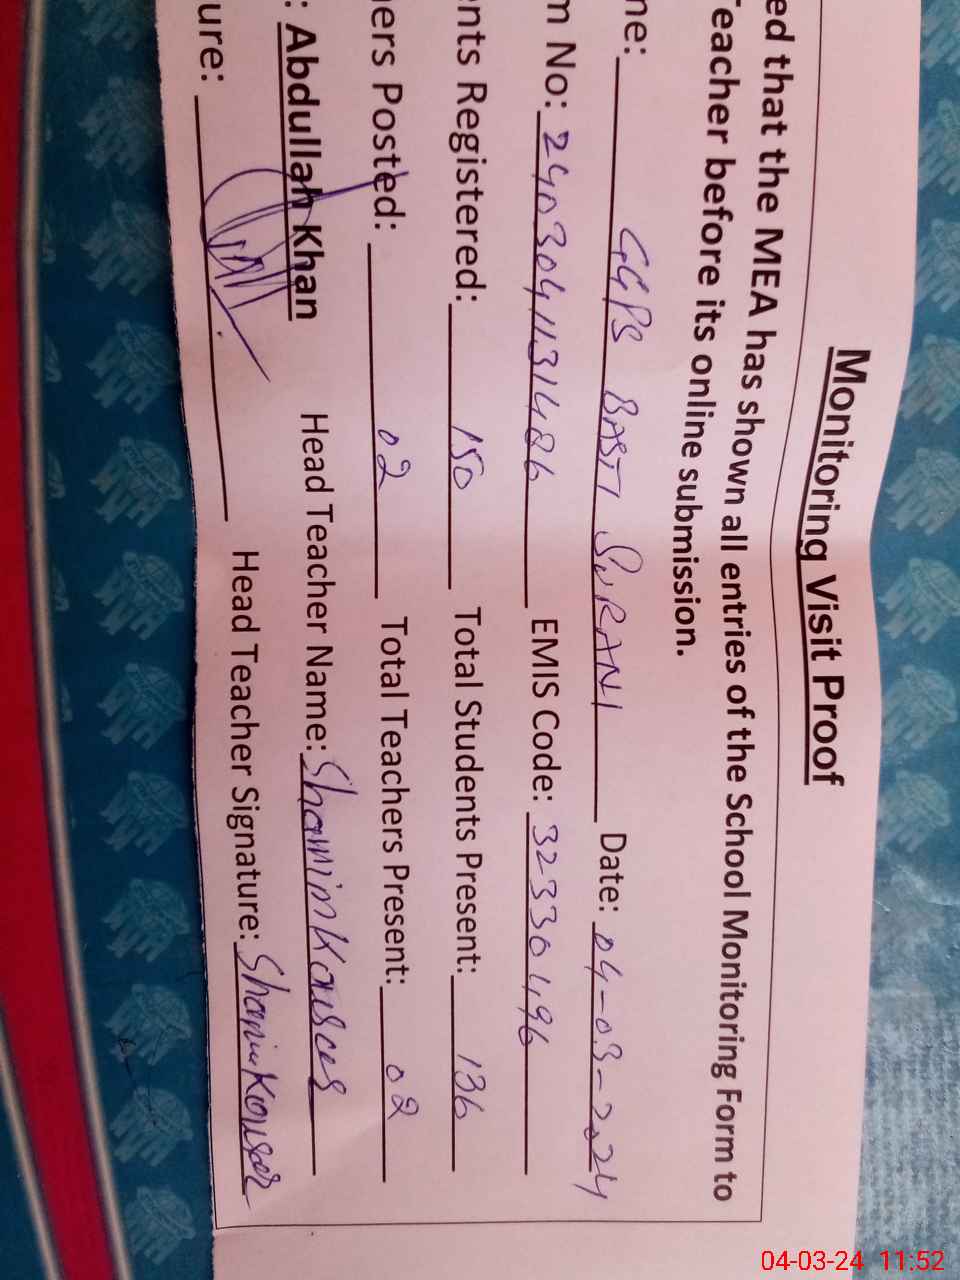 Monitoring Visit Proof
ed that the MEA has shown all entries of the School Monitoring Form to
Teacher before its online submission.
ne: GGPS BASTI SURANI Date: 04-03-2024
m No: 2403041131486 EMIS Code: 32330496
nts Registered: 150 Total Students Present: 136
ers Posted: 02 Total Teachers Present: 02
: Abdullah Khan Head Teacher Name: Shamim Kousar
ure: Head Teacher Signature: Shamim Kousar
04-03-24 11:52